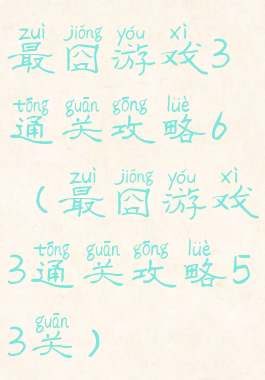 zuì jiǒng yóu xì
最囧游戏3
tōng guān gōng lüè
通关攻略6
zuì jiǒng yóu xì
(最囧游戏
tōng guān gōng lüè
3通关攻略5
guān
3关)